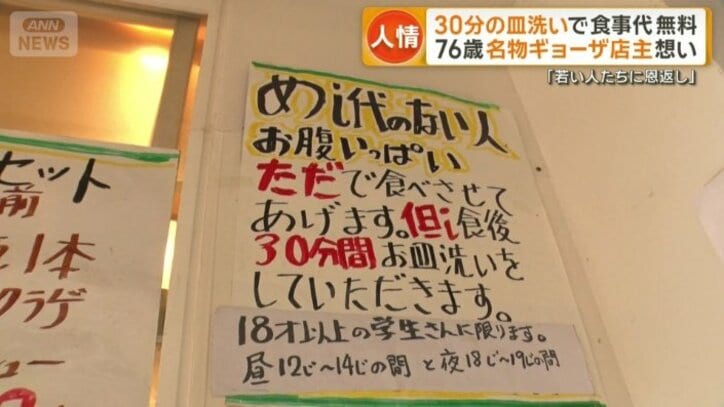 ANN NEWS
人情
30分の皿洗いで食事代 無料
76歳 名物ギョーザ店主 想い
「若い人たちに恩返し」
めし代のない人
お腹いっぱい
ただで食べさせて
あげます。但し食後
30分間お皿洗いを
していただきます。
18才以上の学生さんに限ります。
昼12じ～14じの間と夜18じ～19じの間
セット
前
1本
クラゲ
ュー